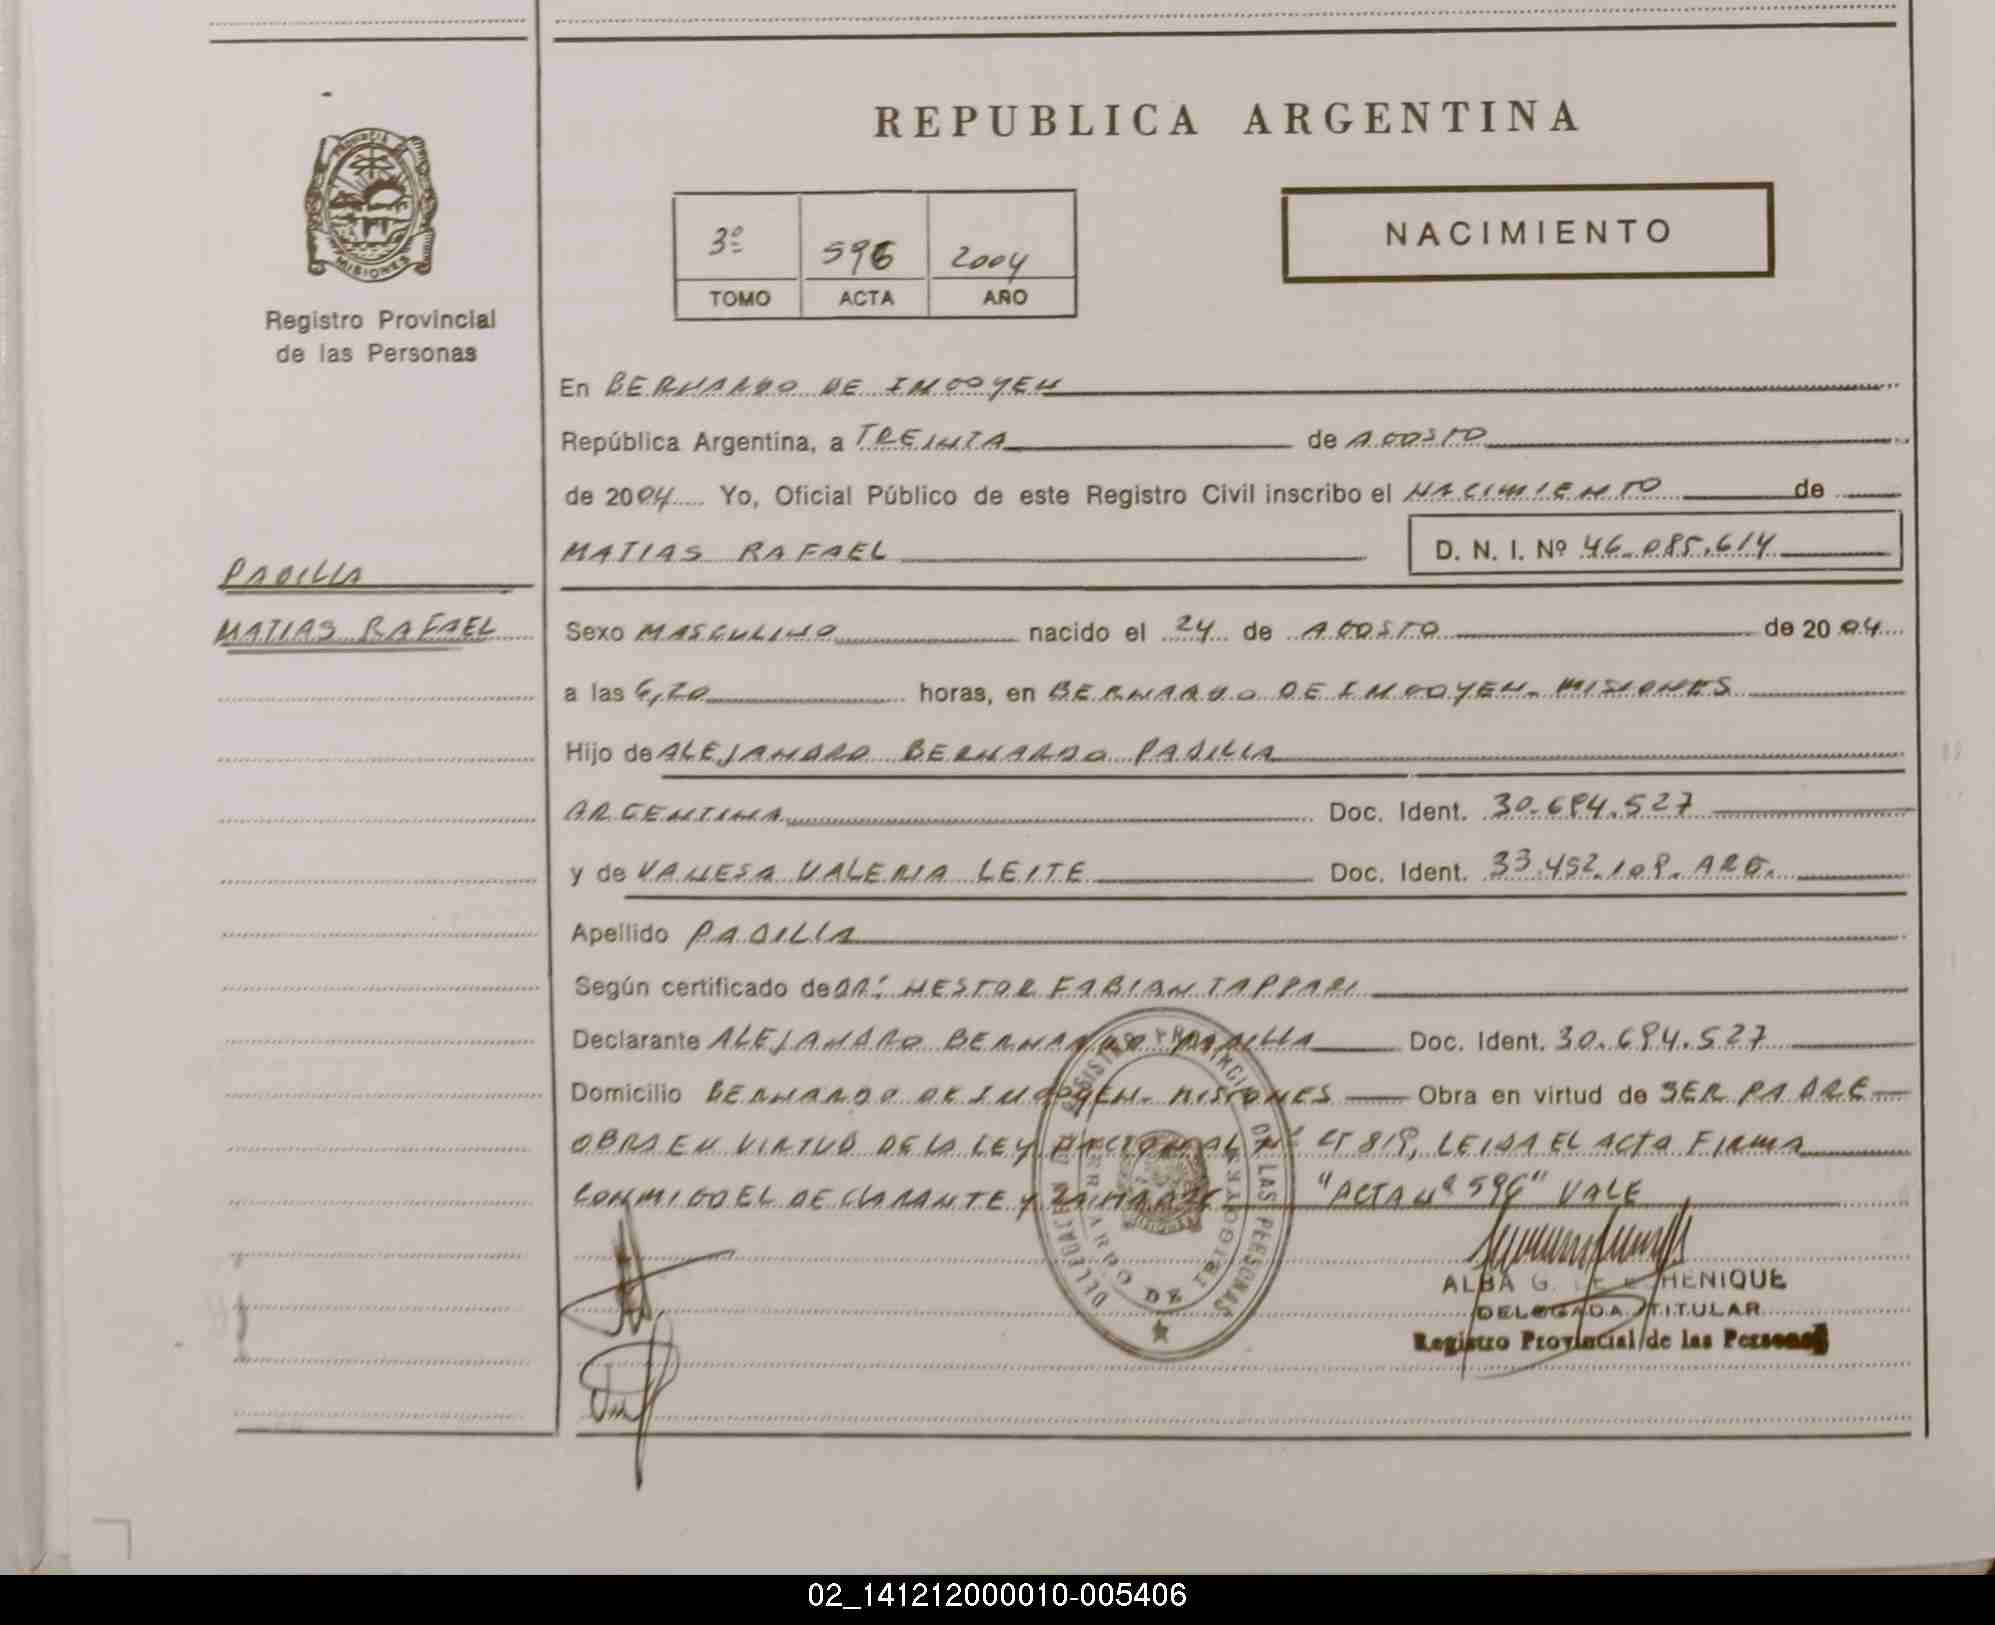 REPUBLICA ARGENTINA
PROVINCIA
MISIONES
Registro Provincial
de las Personas
3º 596 2004
TOMO ACTA AÑO
NACIMIENTO
En BERNARDO DE IRIGOYEN
República Argentina, a TREINTA de AGOSTO
de 2004 Yo, Oficial Público de este Registro Civil inscribo el NACIMIENTO de
MATIAS RAFAEL D. N. I. Nº 46.085.614
PADILLA
MATIAS RAFAEL
Sexo MASCULINO nacido el 24 de AGOSTO de 2004
a las 6,20 horas, en BERNARDO DE IRIGOYEN. MISIONES
Hijo de ALEJANDRO BERNARDO PADILLA
ARGENTINA Doc. Ident. 30.694.527
y de VANESA VALERIA LEITE Doc. Ident. 33.452.109. ARG.
Apellido PADILLA
Según certificado de DR: NESTOR FABIAN TAPPARI
Declarante ALEJANDRO BERNARDO PADILLA Doc. Ident. 30.694.527
Domicilio BERNARDO DE IRIGOYEN. MISIONES Obra en virtud de SER PADRE
OBRA EN VIRTUD DE LA LEY NACIONAL Nº 25819, LEIDA EL ACTA FIRMA
CONMIGO EL DECLARANTE Y LA MADRE "ACTA Nº 596" VALE
DELEGACION REGISTRO PROVINCIAL DE LAS PERSONAS
DE IRIGOYEN
ALBA G. HENIQUE
DELEGADA TITULAR
Registro Provincial de las Personas
02_141212000010-005406